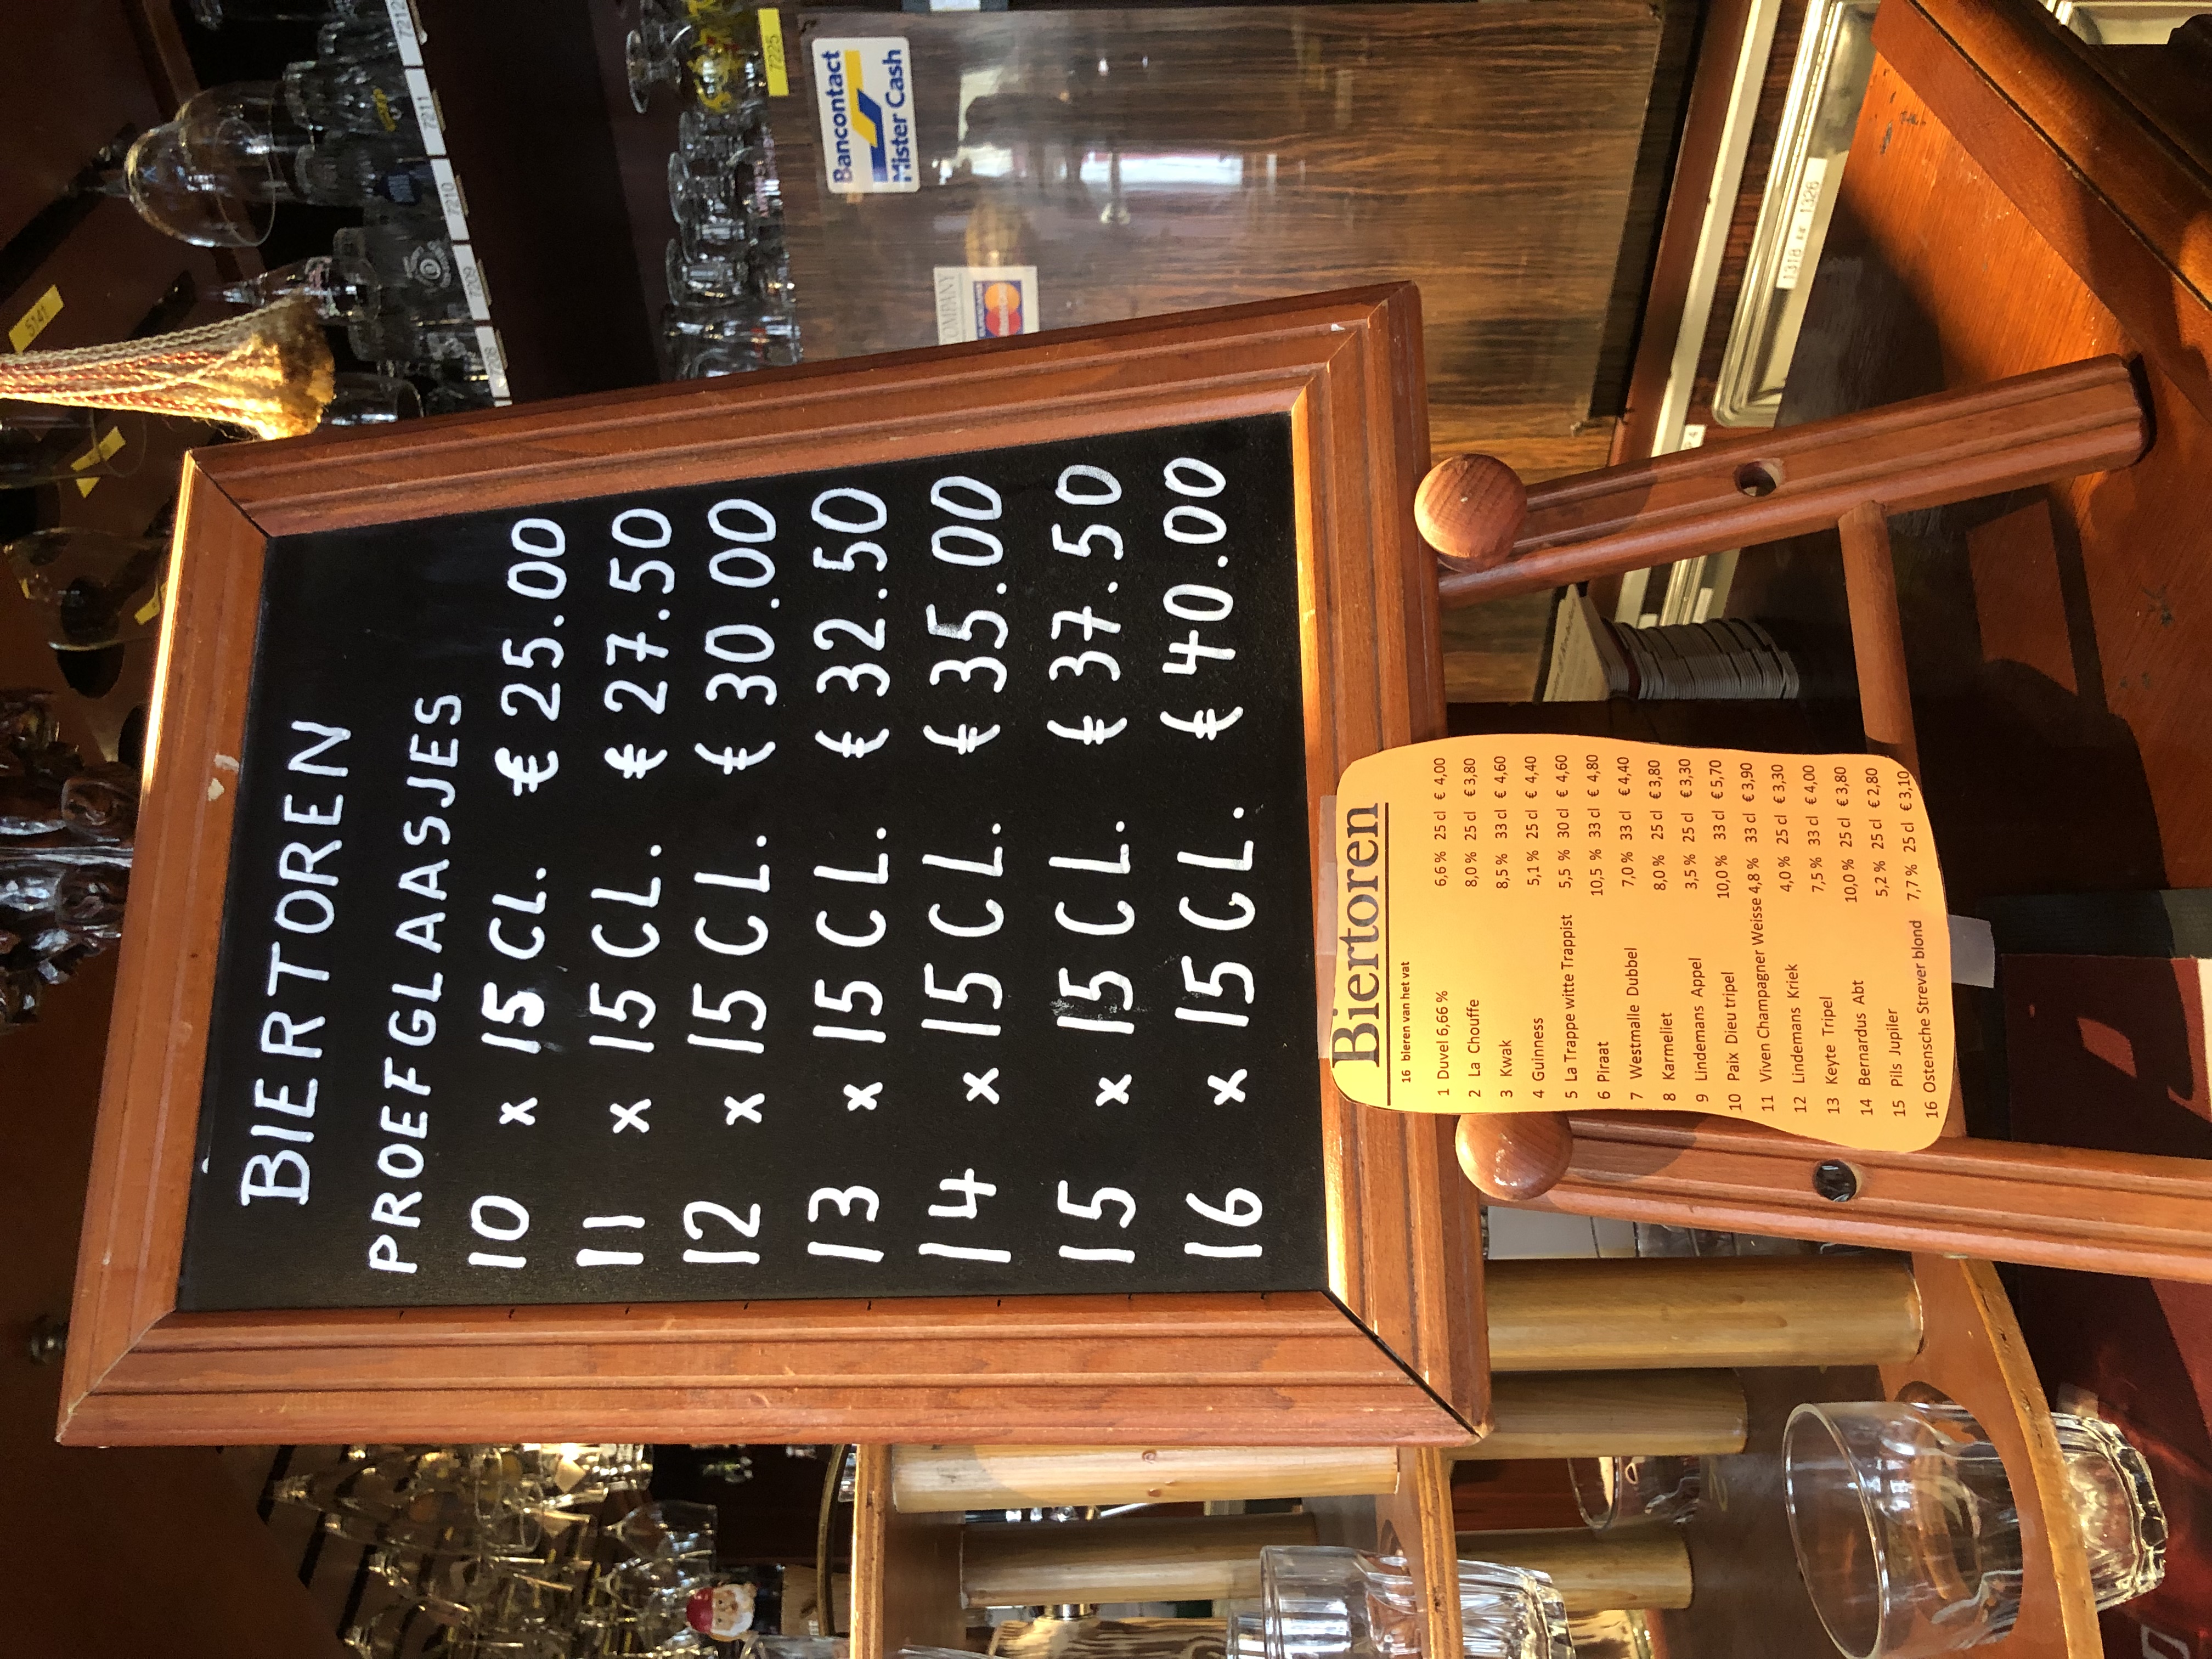 BIERTOREN
PROEFGLAASJES
10 x 15 CL. € 25.00
11 x 15 CL. € 27.50
12 x 15 CL. € 30.00
13 x 15 CL. € 32.50
14 x 15 CL. € 35.00
15 x 15 CL. € 37.50
16 x 15 CL. € 40.00
Biertoren
16 bieren van het vat
1 Duvel 6,66 % 6,6 % 25 cl € 4,00
2 La Chouffe 8,0 % 25 cl € 3,80
3 Kwak 8,5 % 33 cl € 4,60
4 Guinness 5,1 % 25 cl € 4,40
5 La Trappe witte Trappist 5,5 % 30 cl € 4,60
6 Piraat 10,5 % 33 cl € 4,80
7 Westmalle Dubbel 7,0 % 33 cl € 4,40
8 Karmeliet 8,0 % 25 cl € 3,80
9 Lindemans Appel 3,5 % 25 cl € 3,30
10 Paix Dieu tripel 10,0 % 33 cl € 5,70
11 Viven Champagner Weisse 4,8 % 33 cl € 3,90
12 Lindemans Kriek 4,0 % 25 cl € 3,30
13 Keyte Tripel 7,5 % 33 cl € 4,00
14 Bernardus Abt 10,0 % 25 cl € 3,80
15 Pils Jupiler 5,2 % 25 cl € 2,80
16 Ostensche Strever blond 7,7 % 25 cl € 3,10
Bancontact
Mister Cash
7212
7211
7210
7209
7208
7225
5141